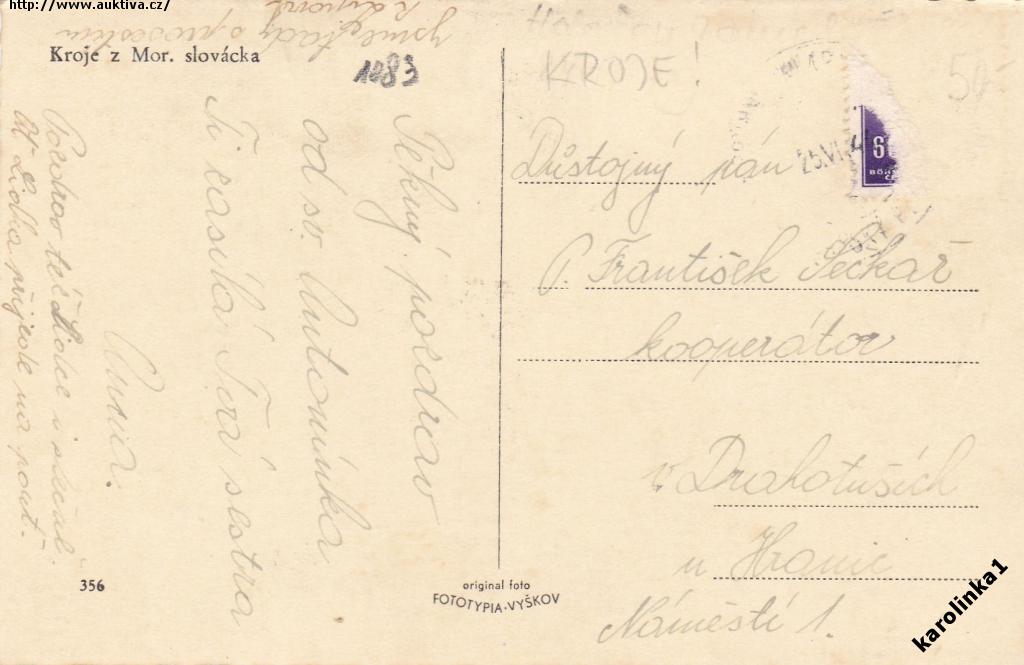 http://www.auktiva.cz/
Kroje z Mor. slovácka
1083
KROJE!
50
Pěkný pozdrav
od sv. Antonínka
Ti zasílá Tvá sestra
Anna.
Pozdrav též Lidce
ať Lidka přijede na pout.
25.VI.4
6
BÖH
Důstojný pán
P. František Sečkař
kooperátor
v Drahotuších
u Hranic
Náměstí 1.
356
original foto
FOTOTYPIA-VYŠKOV
karolinka1